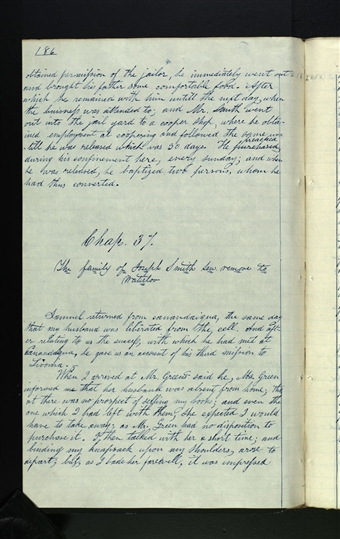 186
obtained permission of the jailor, he immediately went out
and brought his father some comfortable food. After
which he remained with him untill the next day, when
the business was attended to; and Mr. Smith went
out into the jail yard to a cooper shop, where he obta-
ined employment at coopering and followed the same un-
till he was released which was 30 days. He preached
during his confinement here, every sunday; and when
he was released, he baptized two persons, whom he
had thus converted.
Chap. 37.
The family of Joseph Smith sen. remove to
Waterloo
Samuel returned from canandaigua, the same day
that my husband was liberated from the cell. And aft-
er relating to us the success, with which he had met at
Canandaigua, he gave us an account of his third mission to
Livonia.
When I arrived at Mr. Greens said he, Mrs Green
informed me that her husband was absent from home; th-
at there was no prospect of selling my books; and even the
one which I had left with them, she expected I would
have to take away; as Mr. Green had no disposition to
purchase it. I then talked with her a short time; and
binding my knapsack upon my shoulders, arose to
depart; but, as I bade her farewell, it was impressed